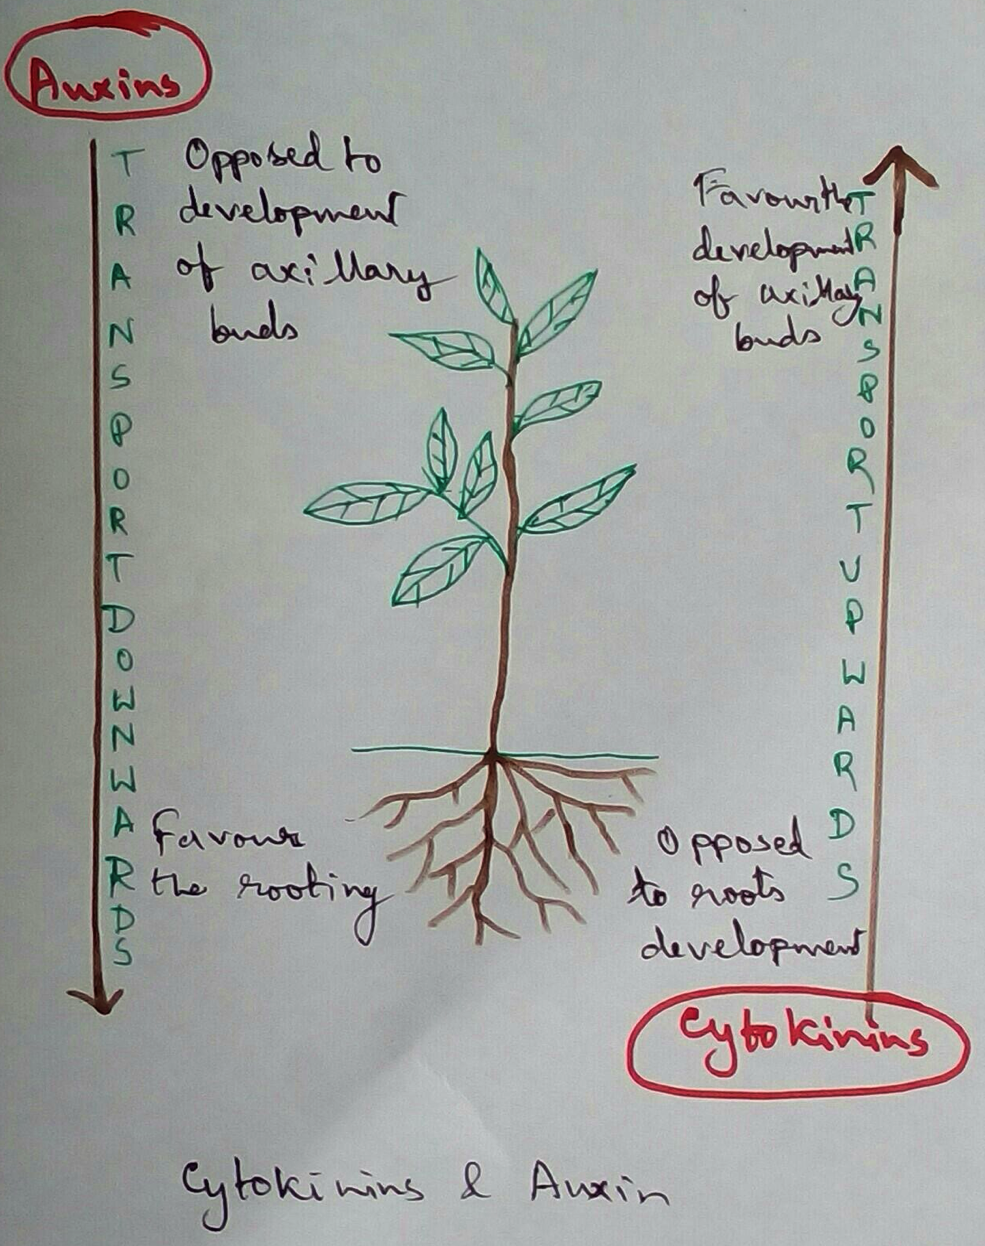 Auxins
TRANSPORT DOWNWARDS
Opposed to
development
of axillary
buds
Favour
the rooting
Favour the
development
of axillay
buds
TRANSPORT UPWARDS
Opposed
to roots
development
Cytokinins
Cytokinins & Auxin